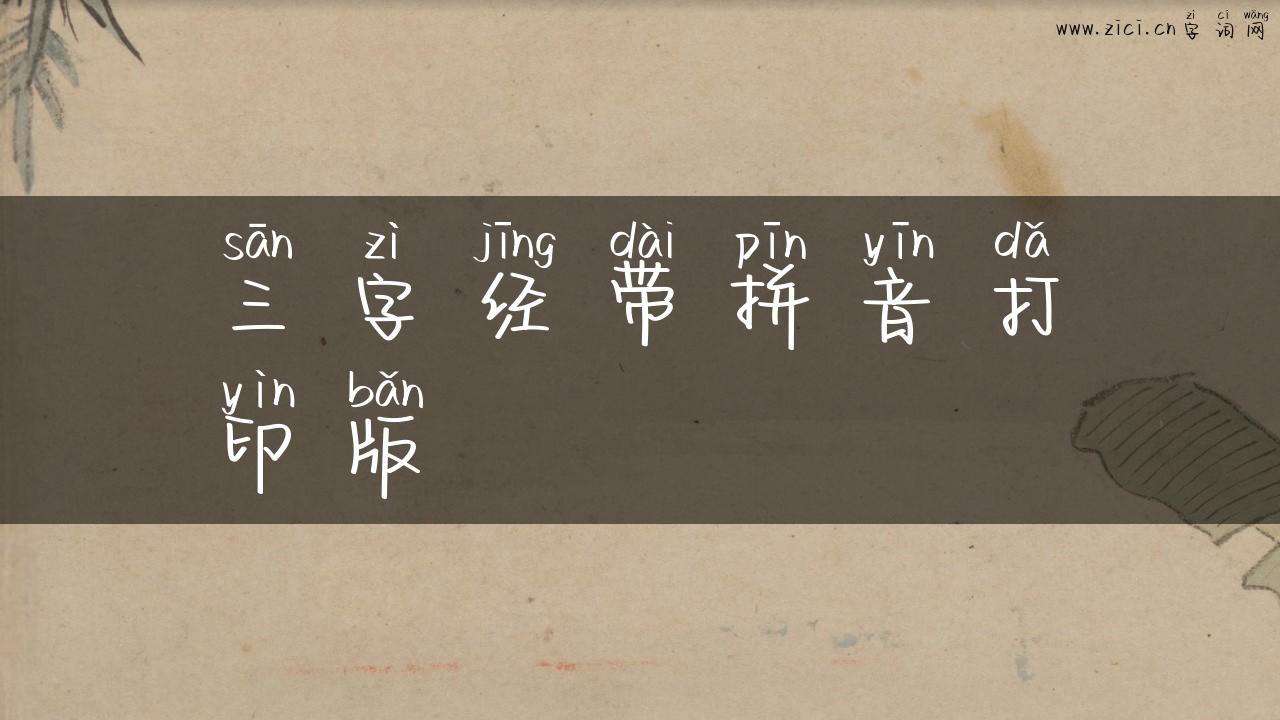 zì cí wǎng
www.zici.cn 字 词 网
sān zì jīng dài pīn yīn dǎ
三 字 经 带 拼 音 打
yìn bǎn
印 版